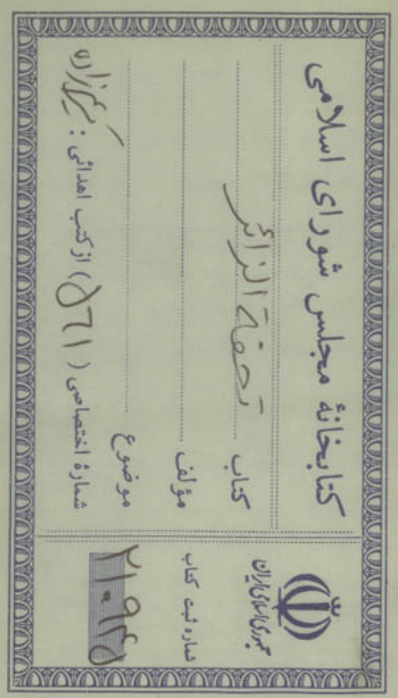 کتابخانهٔ مجلس شورای اسلامی
کتاب تحفة الزائر
مؤلف
موضوع
شمارهٔ اختصاصی ( ۵۶۱ ) از کتب اهدائی :
جمهوری اسلامی ایران
شماره ثبت کتاب